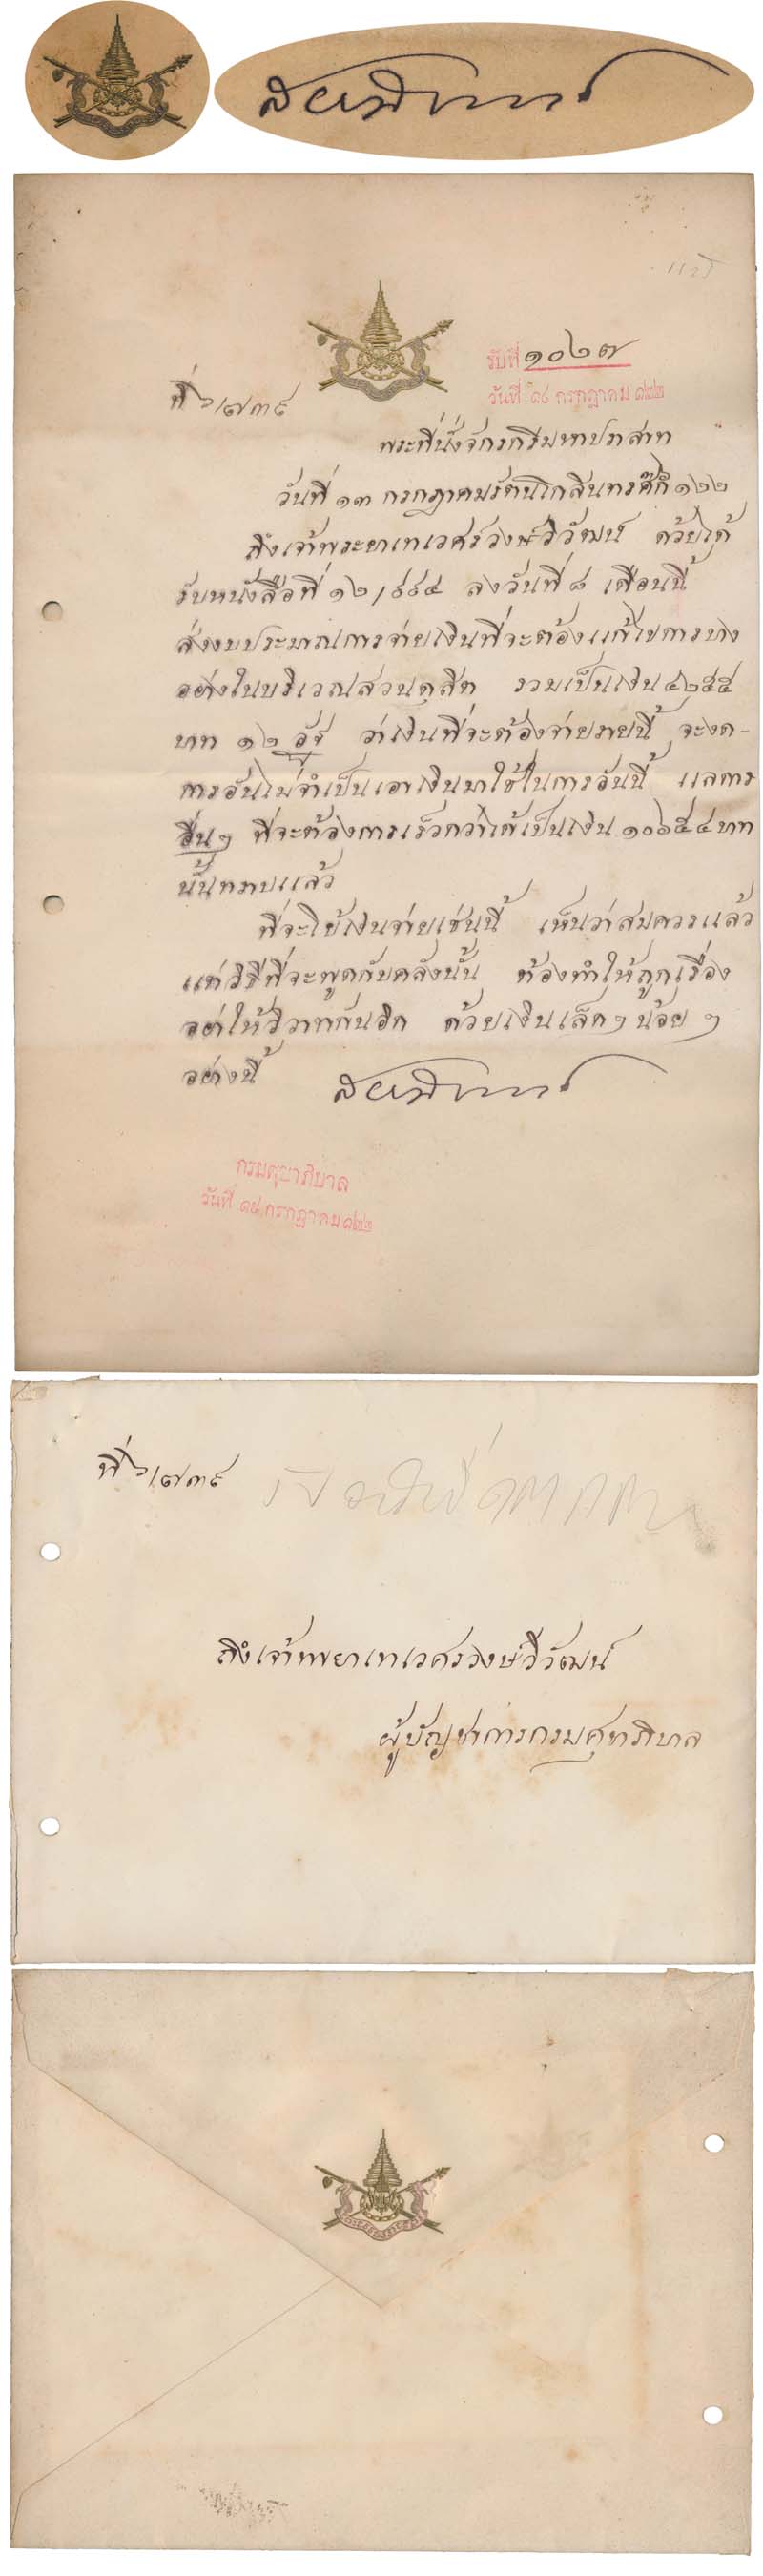 สยามินทร์
รับที่ ๑๐๒๗
วันที่ ๑๔ กรกฎาคม ๑๒๒
ที่ ๖/๗๓๙
พระที่นั่งจักรกรีมหาปราสาท
วันที่ ๑๓ กรกฎาคม รัตนโกสินทรศักร ๑๒๒
ถึง เจ้าพระยาเทเวศร์วงษ์วิวัฒน์ ด้วยได้
รับหนังสือที่ ๑๒/ ลงวันที่ ๘ เดือนนี้
ส่งงบประมาณการจ่ายเงินที่จะต้องแก้ไขการบาง
อย่างในบริเวณสวนดุสิต รวมเป็นเงิน
บาท ๑๒ อัฐ ว่าเงินที่จะต้องจ่ายรายนี้ จะงด-
การอันไม่จำเป็นเอาเงินมาใช้ในการอันนี้ แลการ
อื่นๆ ที่จะต้องการเร็วกว่าได้เป็นเงิน บาท
นั้นทราบแล้ว
ที่จะใช้เงินจ่ายเช่นนี้ เห็นว่าสมควรแล้ว
แต่วิธีที่จะพูดกับคลังนั้น ต้องทำให้ถูกเรื่อง
อย่าให้วิวาทกันอีก ด้วยเงินเล็กๆ น้อยๆ
อย่างนี้
สยามินทร์
กรมศุขาภิบาล
วันที่ ๑๔ กรกฎาคม ๑๒๒
ที่ ๖/๗๓๙
ถึง เจ้าพยาเทเวศรวงษ์วิวัฒน์
ผู้บัญชาการกรมศุขาภิบาล